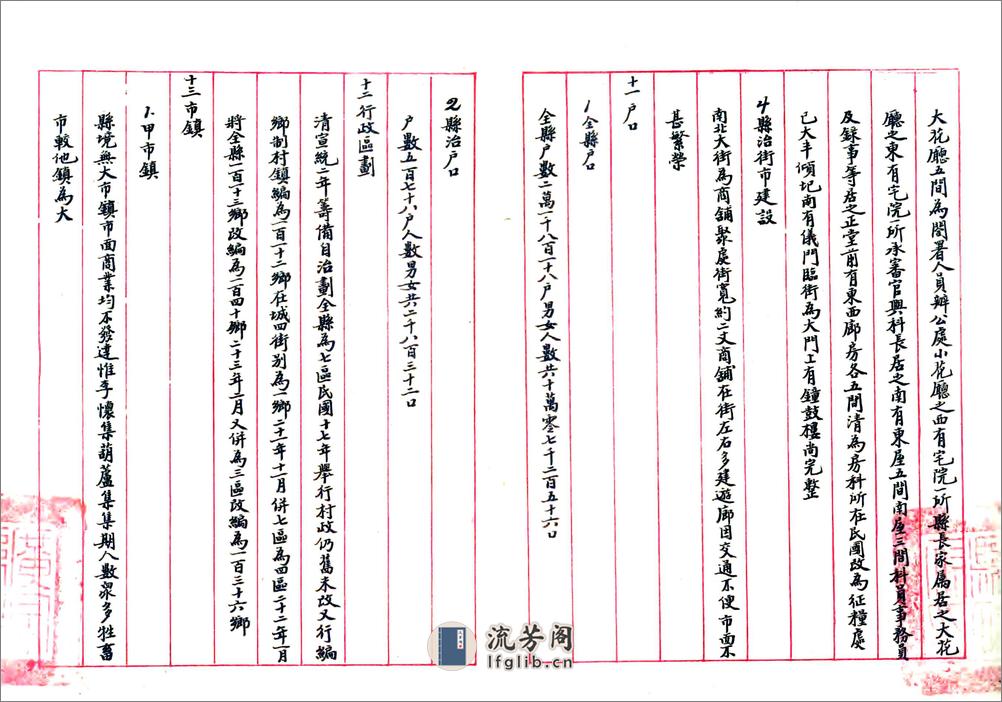 大花廳五間為閤署人員辦公處小花廳之西有宅院一所縣長家属居之大花
廳之東有宅院一所承審官與科長居之南有東屋五間南屋三間科員事務員
及録事等居之正堂前有東西廊房各五間清為房科所在民國改為征糧處
已大半傾圯南有儀門臨街為大門上有鐘鼓樓尚完整
4縣治街市建設
南北大街為商舖聚處街寬約二丈商舖在街左右多建遊廊因交通不便市面不
甚繁榮
十一户口
1全縣户口
全縣户數二萬一千八百一十八户男女人數共十萬零七千二百五十六口
2縣治户口
户數五百七十八户人數男女共二千八百三十二口
十二行政區劃
清宣統二年籌備自治劃全縣為七區民國十七年舉行村政仍舊未改又行編
鄉制村鎮編為一百一十二鄉在城四街别為一鄉二十年十一月併七區為四區二十二年一月
將全縣一百一十三鄉改編為二百四十鄉二十三年二月又併為三區改編為一百三十六鄉
十三市鎮
1.甲市鎮
縣境無大市鎮市面商業均不發達惟李懷集葫蘆集集期人數衆多牲畜
市較他鎮為大
流芳阁
lfglib.cn